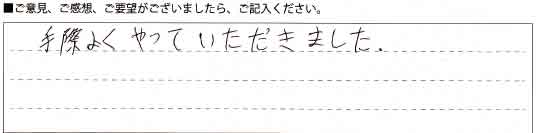 ■ご意見、ご感想、ご要望がございましたら、ご記入ください。
手際よくやっていただきました.